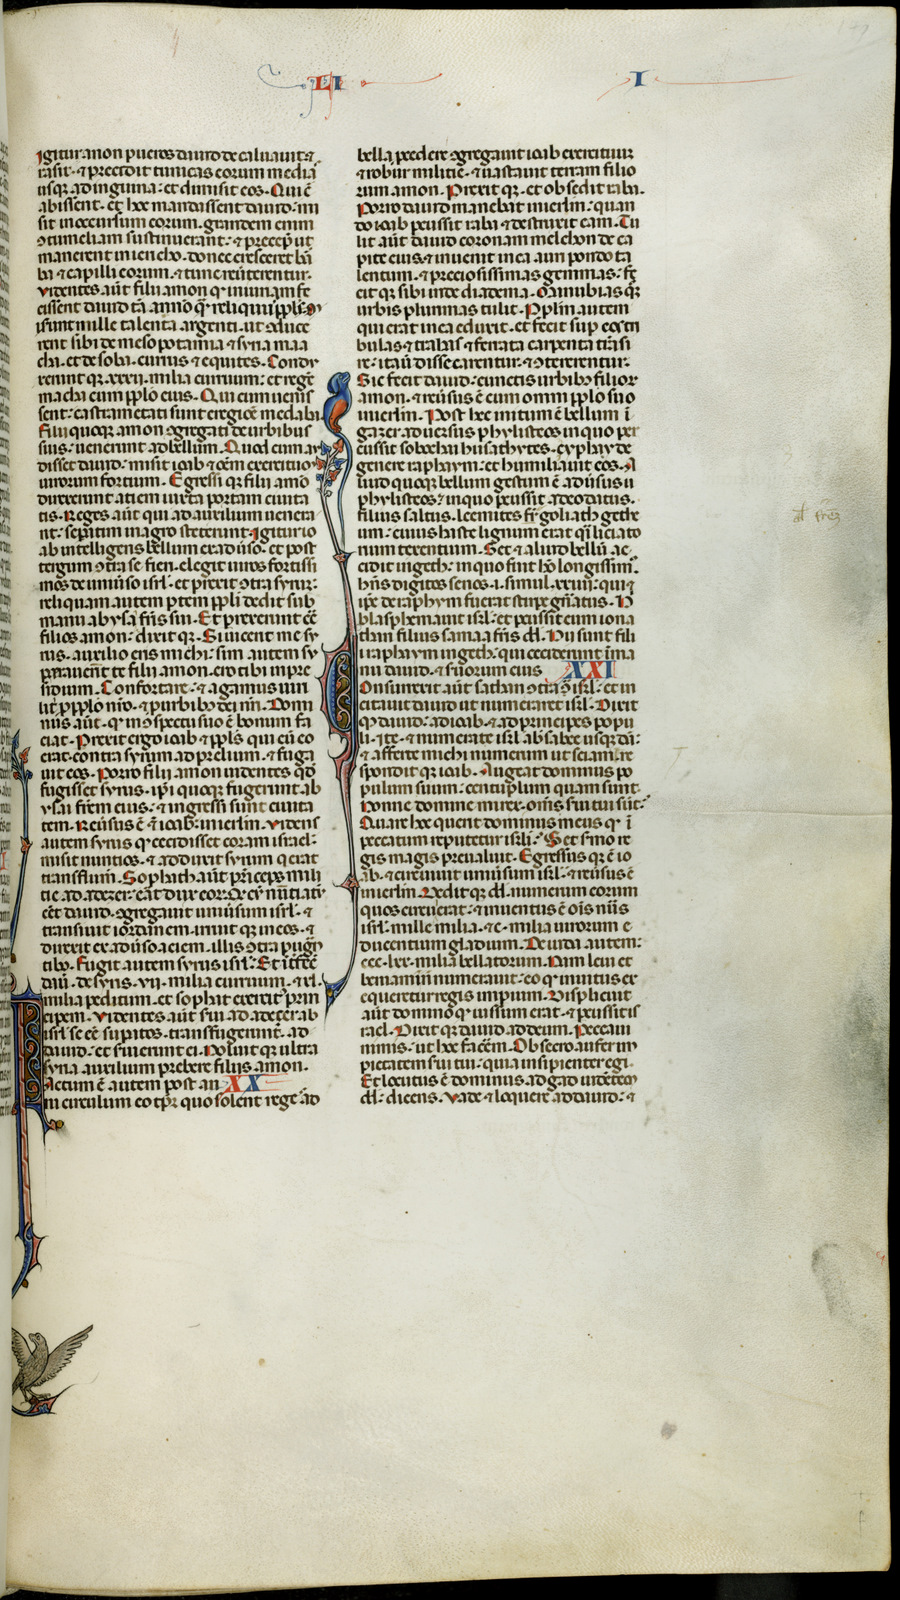 LI I
igitur anon pueros dauid decaluauit ⁊
rasit · ⁊ precidit tunicas eorum media
usqꝫ ad inguina : et dimisit eos · Qui cū
abissent · et hoc mandassent dauid : mi
sit in occursum eorum · grandem enim
ꝯtumeliam sustinuerant : ⁊ precepit ut
manerent in iericho · donec cresceret bar
ba ⁊ capilli eorum · ⁊ tunc reuerterentur ·
Videntes aūt filii amon qꝫ iniuriam fe
cissent dauid tā amō qꝫ reliquꝰ ppl̄s : m
iserunt mille talenta argenti · ut ꝯduce
rent sibi de mesopotamia ⁊ syria maa
cha · et de soba · currus ⁊ equites · Condu
xerunt qꝫ xxxii · milia curruum : et regē
macha cum pplo eius · Qui cum uenis
sent : castrametati sunt e regione medaba
Filii quoqꝫ amon ꝯgregati de urbibus
suis : uenerunt ad bellum · Quod cum au
disset dauid : misit ioab ⁊ oēm exercitum
uirorum fortium · Egressi qꝫ filii amō
direxerunt aciem iuxta portam ciuita
tis · Reges aūt qui ad auxilium uenera
nt : sepatim in agro steterunt · Igitur io
ab intelligens bellum ex aduerso · et post
tergum ꝯtra se fieri · elegit uiros fortissi
mos de uniuerso isrl̄ · et prexit ꝯtra syrū :
reliquam autem ptem ppl̄i dedit sub
manu abysai fr̄is sui · Et prexerunt cōtra
filios amon : dixit qꝫ · Si uicerit me sy
rus · auxilio eris michi : sin autem su
perauerint te filii amon · ero tibi in pre
sidium · Confortare · ⁊ agamus uiri
lit̄ p pplo nr̄o · ⁊ p urbibꝫ dei nr̄i · Domi
nus aūt · qꝫ in ꝯspectu suo ē bonum fa
ciat · Prexit ergo ioab ⁊ ppl̄s qui cū eo
erat · contra syrum ad prelium · ⁊ fuga
uit eos · Porro filii amon uidentes qd̄
fugisset syrus · ip̄i quoqꝫ fugerunt ab
ysai fr̄em eius : ⁊ ingressi sunt ciuita
tem · Reuersus ē ⁊ ioab in ierl̄m · Videns
autem syrus qꝫ cecidisset coram israel :
misit nuntios · ⁊ adduxit syrum q̄ erat
trans flum̄ · Sophach aūt princeps mili
tie adadezer · erat dux eoꝝ · Qꝫ cū nūtiatū
eēt dauid · ꝯgregauit uniuersum isrl̄ · ⁊
transiuit iordanem · irruit qꝫ in eos · ⁊
direxit ex aduerso aciem · illis ꝯtra pugn
tibꝫ · Fugit autem syrus isrl̄ : Et intfecit
dauid · de syris · vii · milia curruum · ⁊ xl ·
milia peditum · et sophat exercit̄ prin
cipem · Videntes aūt serui adadezer ab
isrl̄ se eē supatos · transfugerunt · ad
dauid : et seruierunt ei · Noluit qꝫ ultra
syria auxilium prebere filiis amon ·
Factum ē autem post an XX
ni circulum eo tp̄r quo solent reges ad
bella procedere ꝯgregauit ioab exercitum
⁊ robur militie · ⁊ uastauit terram filio
rum amon · Prexit qꝫ · et obsedit raba ·
Porro dauid manebat in ierl̄m · quan
do ioab percussit raba ⁊ destruxit eam · Tu
lit aūt dauid coronam melchon de ca
pite eius · ⁊ inuenit in ea auri pondo ta
lentum · ⁊ preciosissimas gemmas · fe
cit qꝫ sibi inde diadema · Manubias qꝫ
urbis plurimas tulit · Pplm̄ autem
qui erat in ea eduxit · et fecit sup eos tri
bulas ⁊ trahas ⁊ ferrata carpenta transi
re : ita ut dissecarentur · ⁊ ꝯtererentur ·
Sic fecit dauid : cunctis urbibꝫ filior
amon · ⁊ reuersus ē cum omni pplo suo
in ierl̄m · Post hec initum ē bellum i
gazer aduersus phylisteos in quo per
cussit sobochai husathytes · cyphay de
genere raphaym : et humiliauit eos · A
liud quoqꝫ bellum gestum ē aduersus
phylisteos · in quo percussit adeodatus ·
filius saltus · leemites fr̄ goliath gethe
um : cuius haste lignum erat qi liciato
rium texentium · Set ⁊ aliud bellū ac
cidit in geth : in quo fuit hō longissimꝰ ·
hn̄s digitos senos · i · simul · xxiiii : qui ⁊
ip̄e de raphym fuerat stirpe gn̄atus · H
blasphemauit isrl̄ · et percussit eum iona
than filius samaa fr̄is dd̄ · Hii sunt fili
i raphaym in geth : qui ceciderunt in ma
nu dauid · ⁊ seruorum eius XXI
Consurrexit aūt sathan ꝯtra isrl̄ : et in
citauit dauid ut numeraret isrl̄ · Dixit
qꝫ dauid : ad ioab · ⁊ ad principes popu
li · ite · ⁊ numerate isrl̄ a bsabee usqꝫ dan :
⁊ afferte michi numerum ut sciam · re
spondit qꝫ ioab · Augeat dominus po
pulum suum : centuplum quam sunt ·
Nonne domine mi rex · om̄s serui tui sūt ·
Quare hoc querit dominus meus qꝫ i
peccatum reputetur isrl̄i · Set sermo re
gis magis preualuit · Egressus qꝫ ē io
ab · ⁊ circuiuit uniuersum isrl̄ · ⁊ reuersus ē
in ierl̄m · Dedit qꝫ dd̄ · numerum eorum
quos circuierat : ⁊ inuentus ē ōis nūs
isrl̄ · mille milia · ⁊ c · milia uirorum e
ducentium gladium · De iuda autem :
ccc · lxx · milia bellatorum · Nam leui et
beniamin numerauit : eo qꝫ inuitus ex
equeretur regis imperium · Displicuit
aūt domino qꝫ iussum erat · ⁊ percussit is
rael · Dixit qꝫ dauid ad deum · Peccaui
nimis : ut hoc facerem · Obsecro aufer in
pietatem serui tui : quia insipienter egi ·
Et locutus ē dominus ad gad uidentem
dd̄ : dicens · Vade ⁊ loquere ad dauid : ⁊